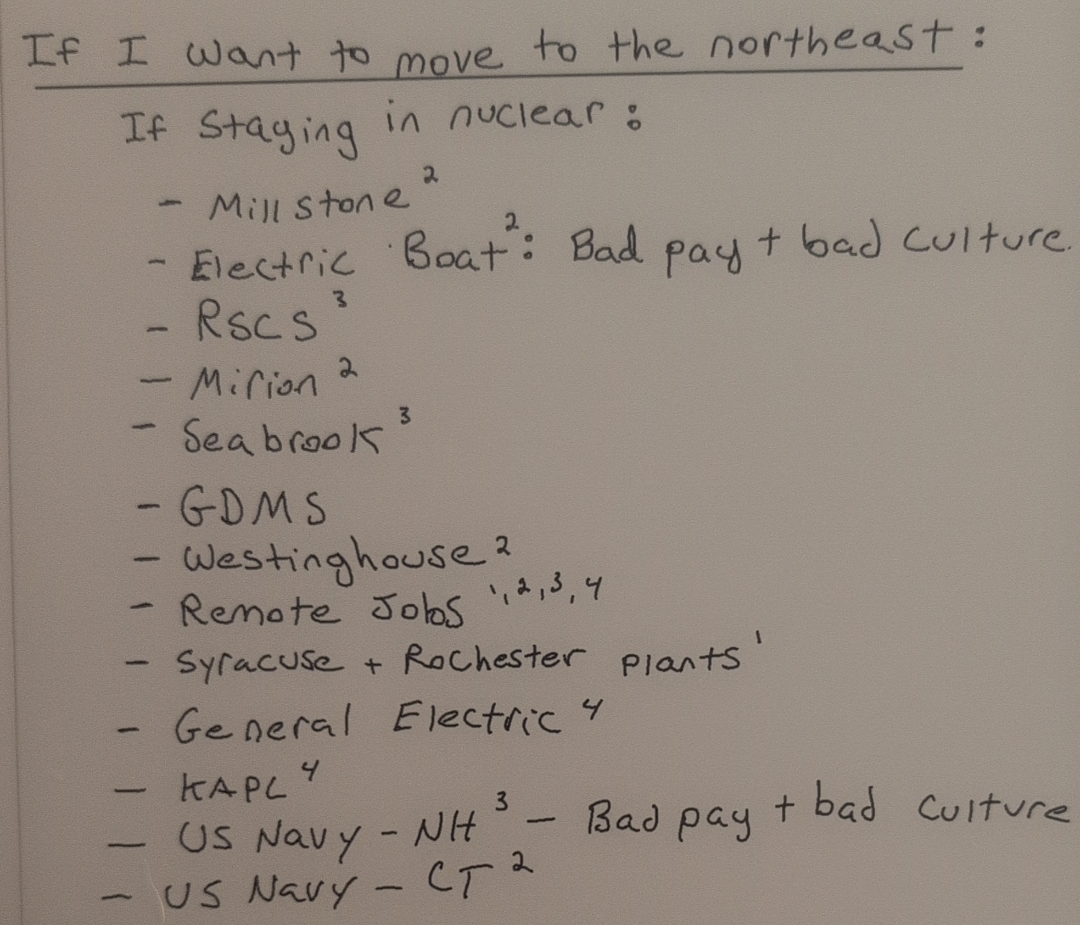 If I want to move to the northeast:
If Staging in nuclear:
- Millstone ²
- Electric Boat ²: Bad pay + bad culture.
- RSCS ³
- Mirion ²
- Seabrook ³
- GDMS
- Westinghouse ²
- Remote Jobs ¹,²,³,⁴
- Syracuse + Rochester plants ¹
- General Electric ⁴
- KAPL ⁴
- US Navy - NH ³ - Bad pay + bad culture
- US Navy - CT ²